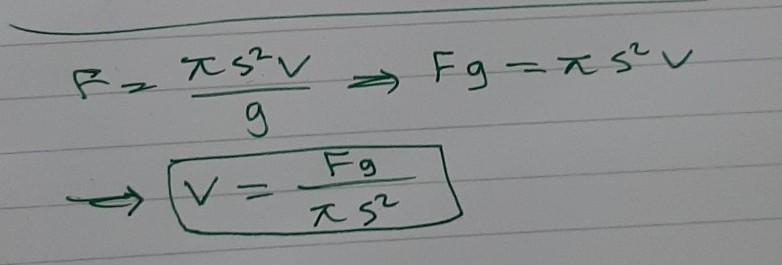 F = πs²v/g ⇒ Fg = πs²v
⇒ v = Fg/πs²